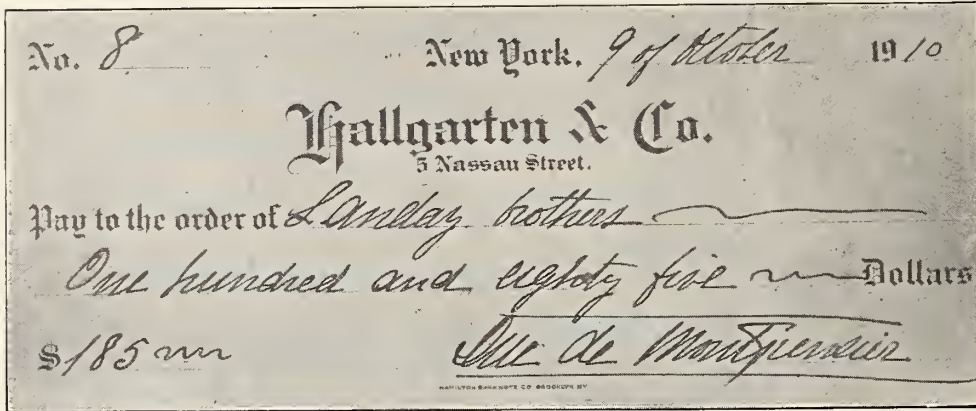 No. 8 New York, 9 of October 1910
Hallgarten & Co.
5 Nassau Street.
Pay to the order of Landay brothers
One hundred and eighty five Dollars
$ 185
Duc de Montpensier
HAMILTON BANK NOTE CO BROOKLYN NY